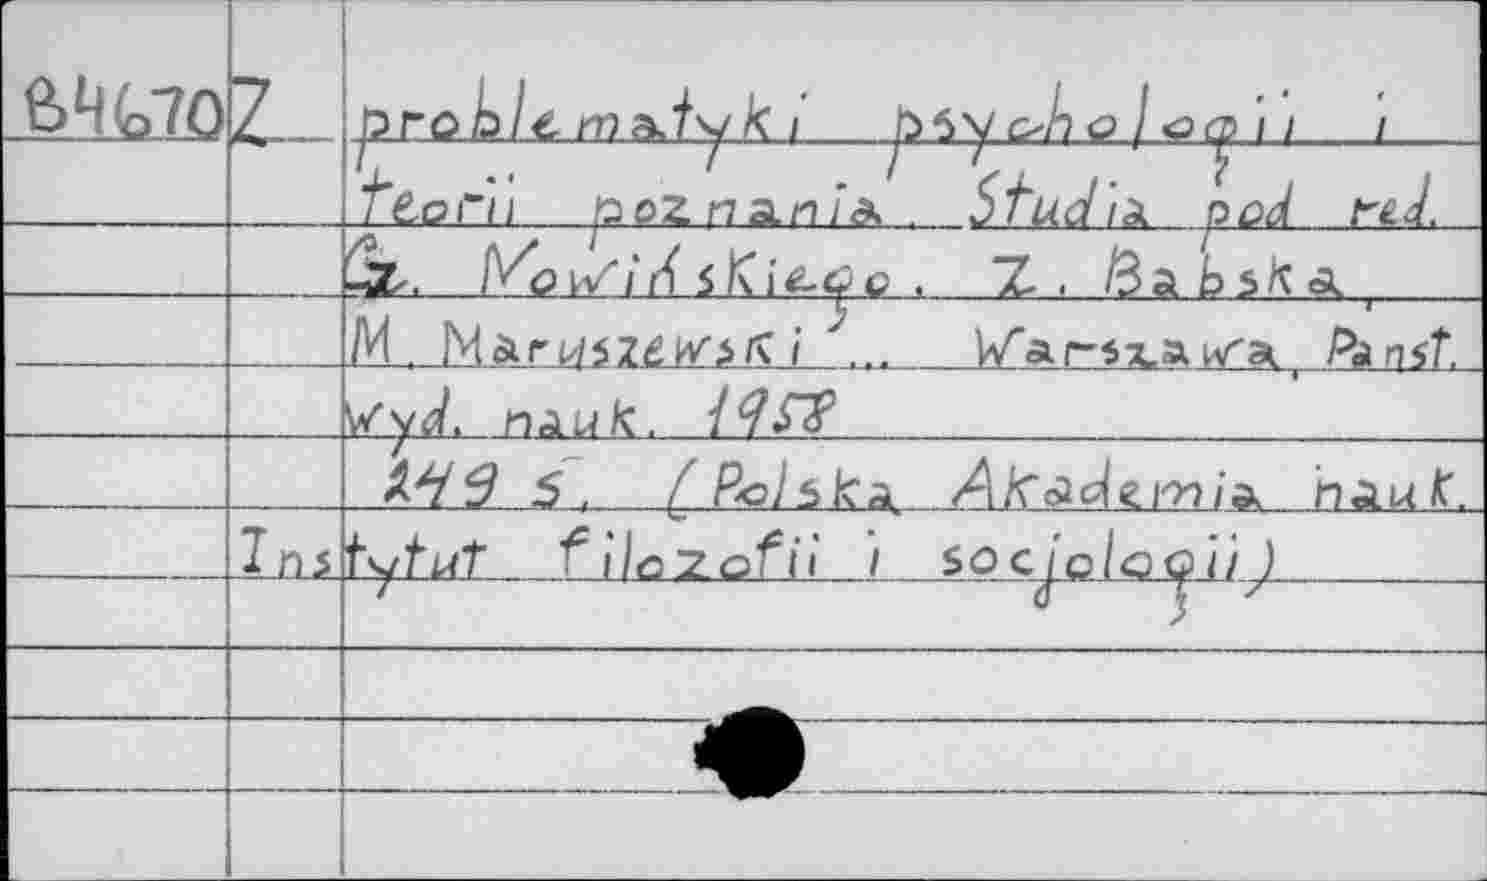 B44670 Z problematyki psychologii i
teorii poznania. Studia pod red.
Cz. Nowińskiego. Z. Babska,
M. Maruszewski ... Warszawa, Państ.
Wyd. nauk. 1958
249 s. (Polska Akademia nauk.
Instytut filozofii i socjologii)